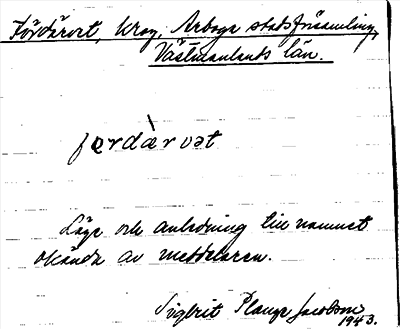 Fördärvet, krog, Arboga stadsförsamling,
Västmanlands län.
fərdàrvət
Läge och anledning till namnet
okända av meddelaren.
Sigbrit Plange Jacobson
1943.